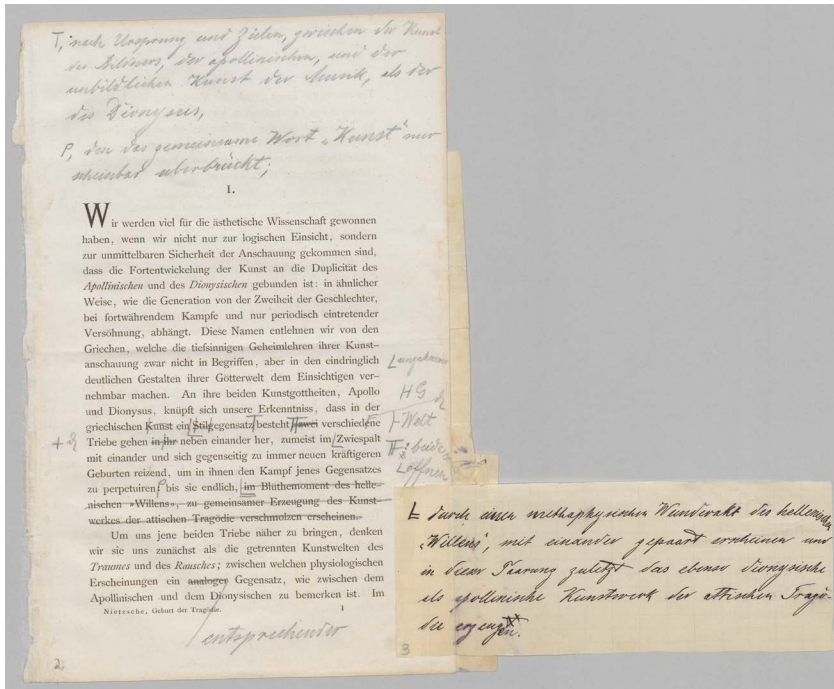 T, nach Ursprung und Zielen, zwischen der Kunst
des Bildners, der apollinischen, und der
unbildlichen Kunst der Musik, als der
des Dionysus,
P, den das gemeinsame Wort „Kunst" nur
scheinbar überbrückt;
1.
Wir werden viel für die ästhetische Wissenschaft gewonnen
haben, wenn wir nicht nur zur logischen Einsicht, sondern
zur unmittelbaren Sicherheit der Anschauung gekommen sind,
dass die Fortentwickelung der Kunst an die Duplicität des
Apollinischen und des Dionysischen gebunden ist: in ähnlicher
Weise, wie die Generation von der Zweiheit der Geschlechter,
bei fortwährendem Kampfe und nur periodisch eintretender
Versöhnung, abhängt. Diese Namen entlehnen wir von den
Griechen, welche die tiefsinnigen Geheimlehren ihrer Kunst-
anschauung zwar nicht in Begriffen, aber in den eindringlich
deutlichen Gestalten ihrer Götterwelt dem Einsichtigen ver-
nehmbar machen. An ihre beiden Kunstgottheiten, Apollo
und Dionysus, knüpft sich unsere Erkenntniss, dass in der
griechischen Kunst ein Stilgegensatz besteht: zwei verschiedene
Triebe gehen in ihr neben einander her, zumeist im Zwiespalt
mit einander und sich gegenseitig zu immer neuen kräftigeren
Geburten reizend, um in ihnen den Kampf jenes Gegensatzes
zu perpetuiren, bis sie endlich, im Blüthemoment des helle-
nischen »Willens«, zu gemeinsamer Erzeugung des Kunst-
werkes der attischen Tragödie verschmolzen erscheinen.
Um uns jene beiden Triebe näher zu bringen, denken
wir sie uns zunächst als die getrennten Kunstwelten des
Traumes und des Rausches; zwischen welchen physiologischen
Erscheinungen ein analoger Gegensatz, wie zwischen dem
Apollinischen und dem Dionysischen zu bemerken ist. Im
Nietzsche, Geburt der Tragödie. 1
entsprechender
2
L ungeheurer
HG
⊢ Welt
beide
L offnen
L durch einen methaphysischen Wunderakt des hellenischen
„Willens", mit einander gepaart erscheinen und
in dieser Paarung zuletzt das ebenso dionysische
als apollinische Kunstwerk der attischen Tragö-
die erzeugen.
3